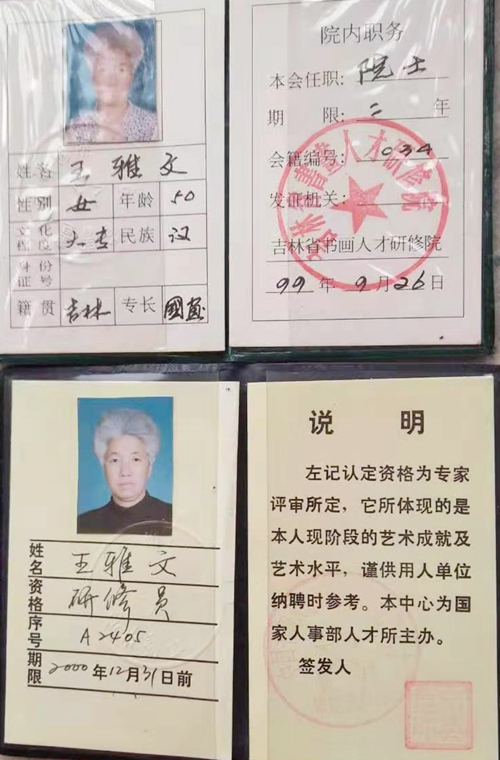 姓名 王雅文
性别 女 年龄 50
文化程度 大专 民族 汉
身份证号
籍贯 吉林 专长 國画
院内职务
本会任职：院士
期 限：二 年
会籍编号：034
发证机关：
吉林省书画人才研修院
吉林省书画人才研修院
99 年 9 月 26 日
姓名 王雅文
资格 研修员
序号 A2405
期限 2000年12月31日前
说 明
左记认定资格为专家
评审所定，它所体现的是
本人现阶段的艺术成就及
艺术水平，谨供用人单位
纳聘时参考。本中心为国
家人事部人才所主办。
签发人